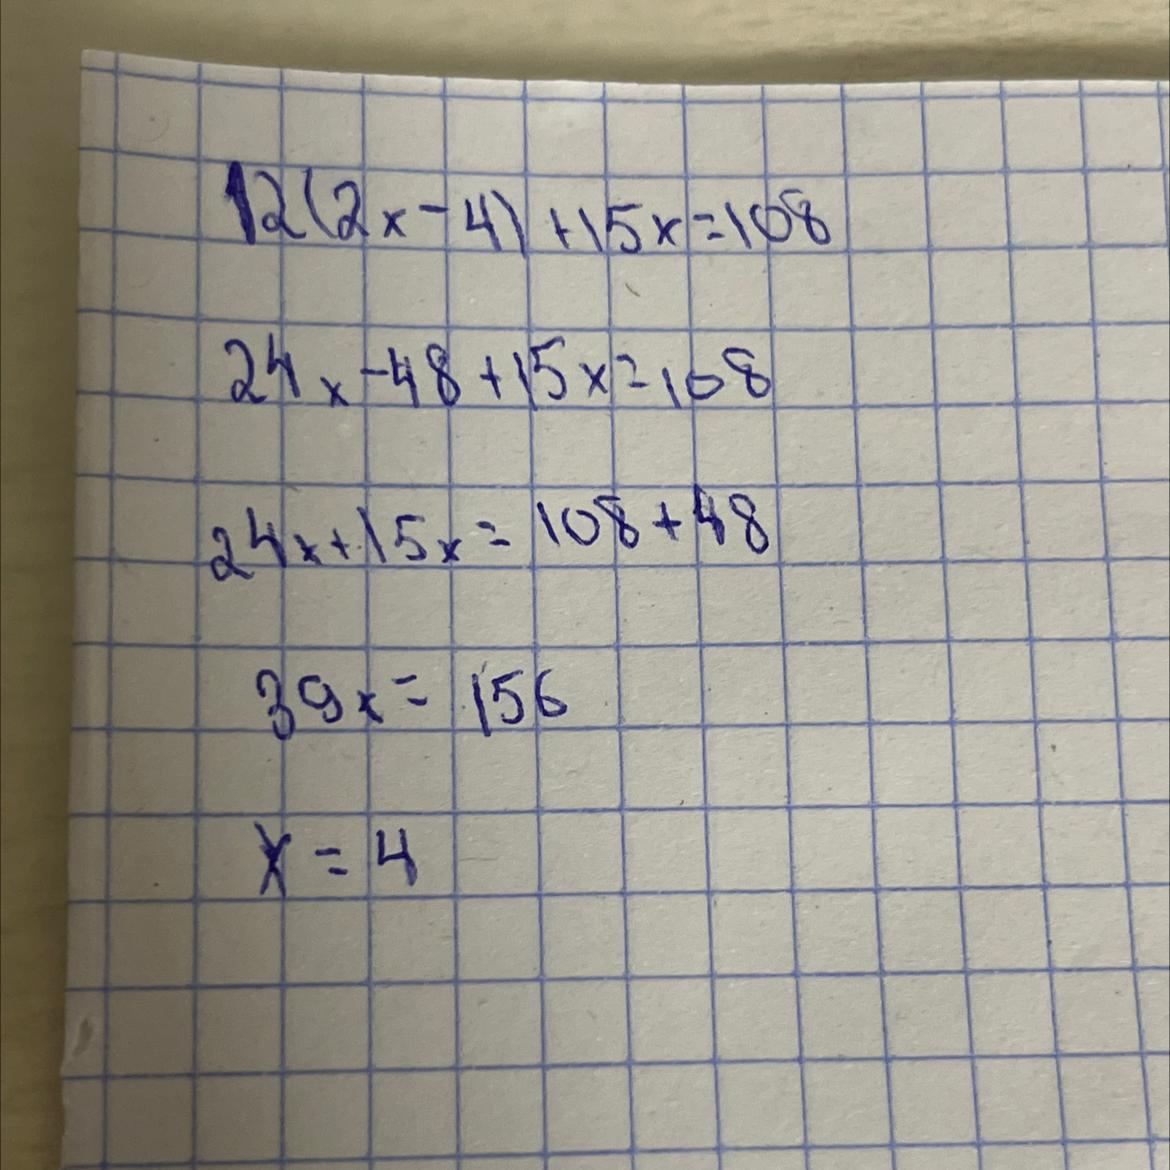 12(2x-4)+15x=108
24x-48+15x=108
24x+15x=108+48
39x=156
x=4